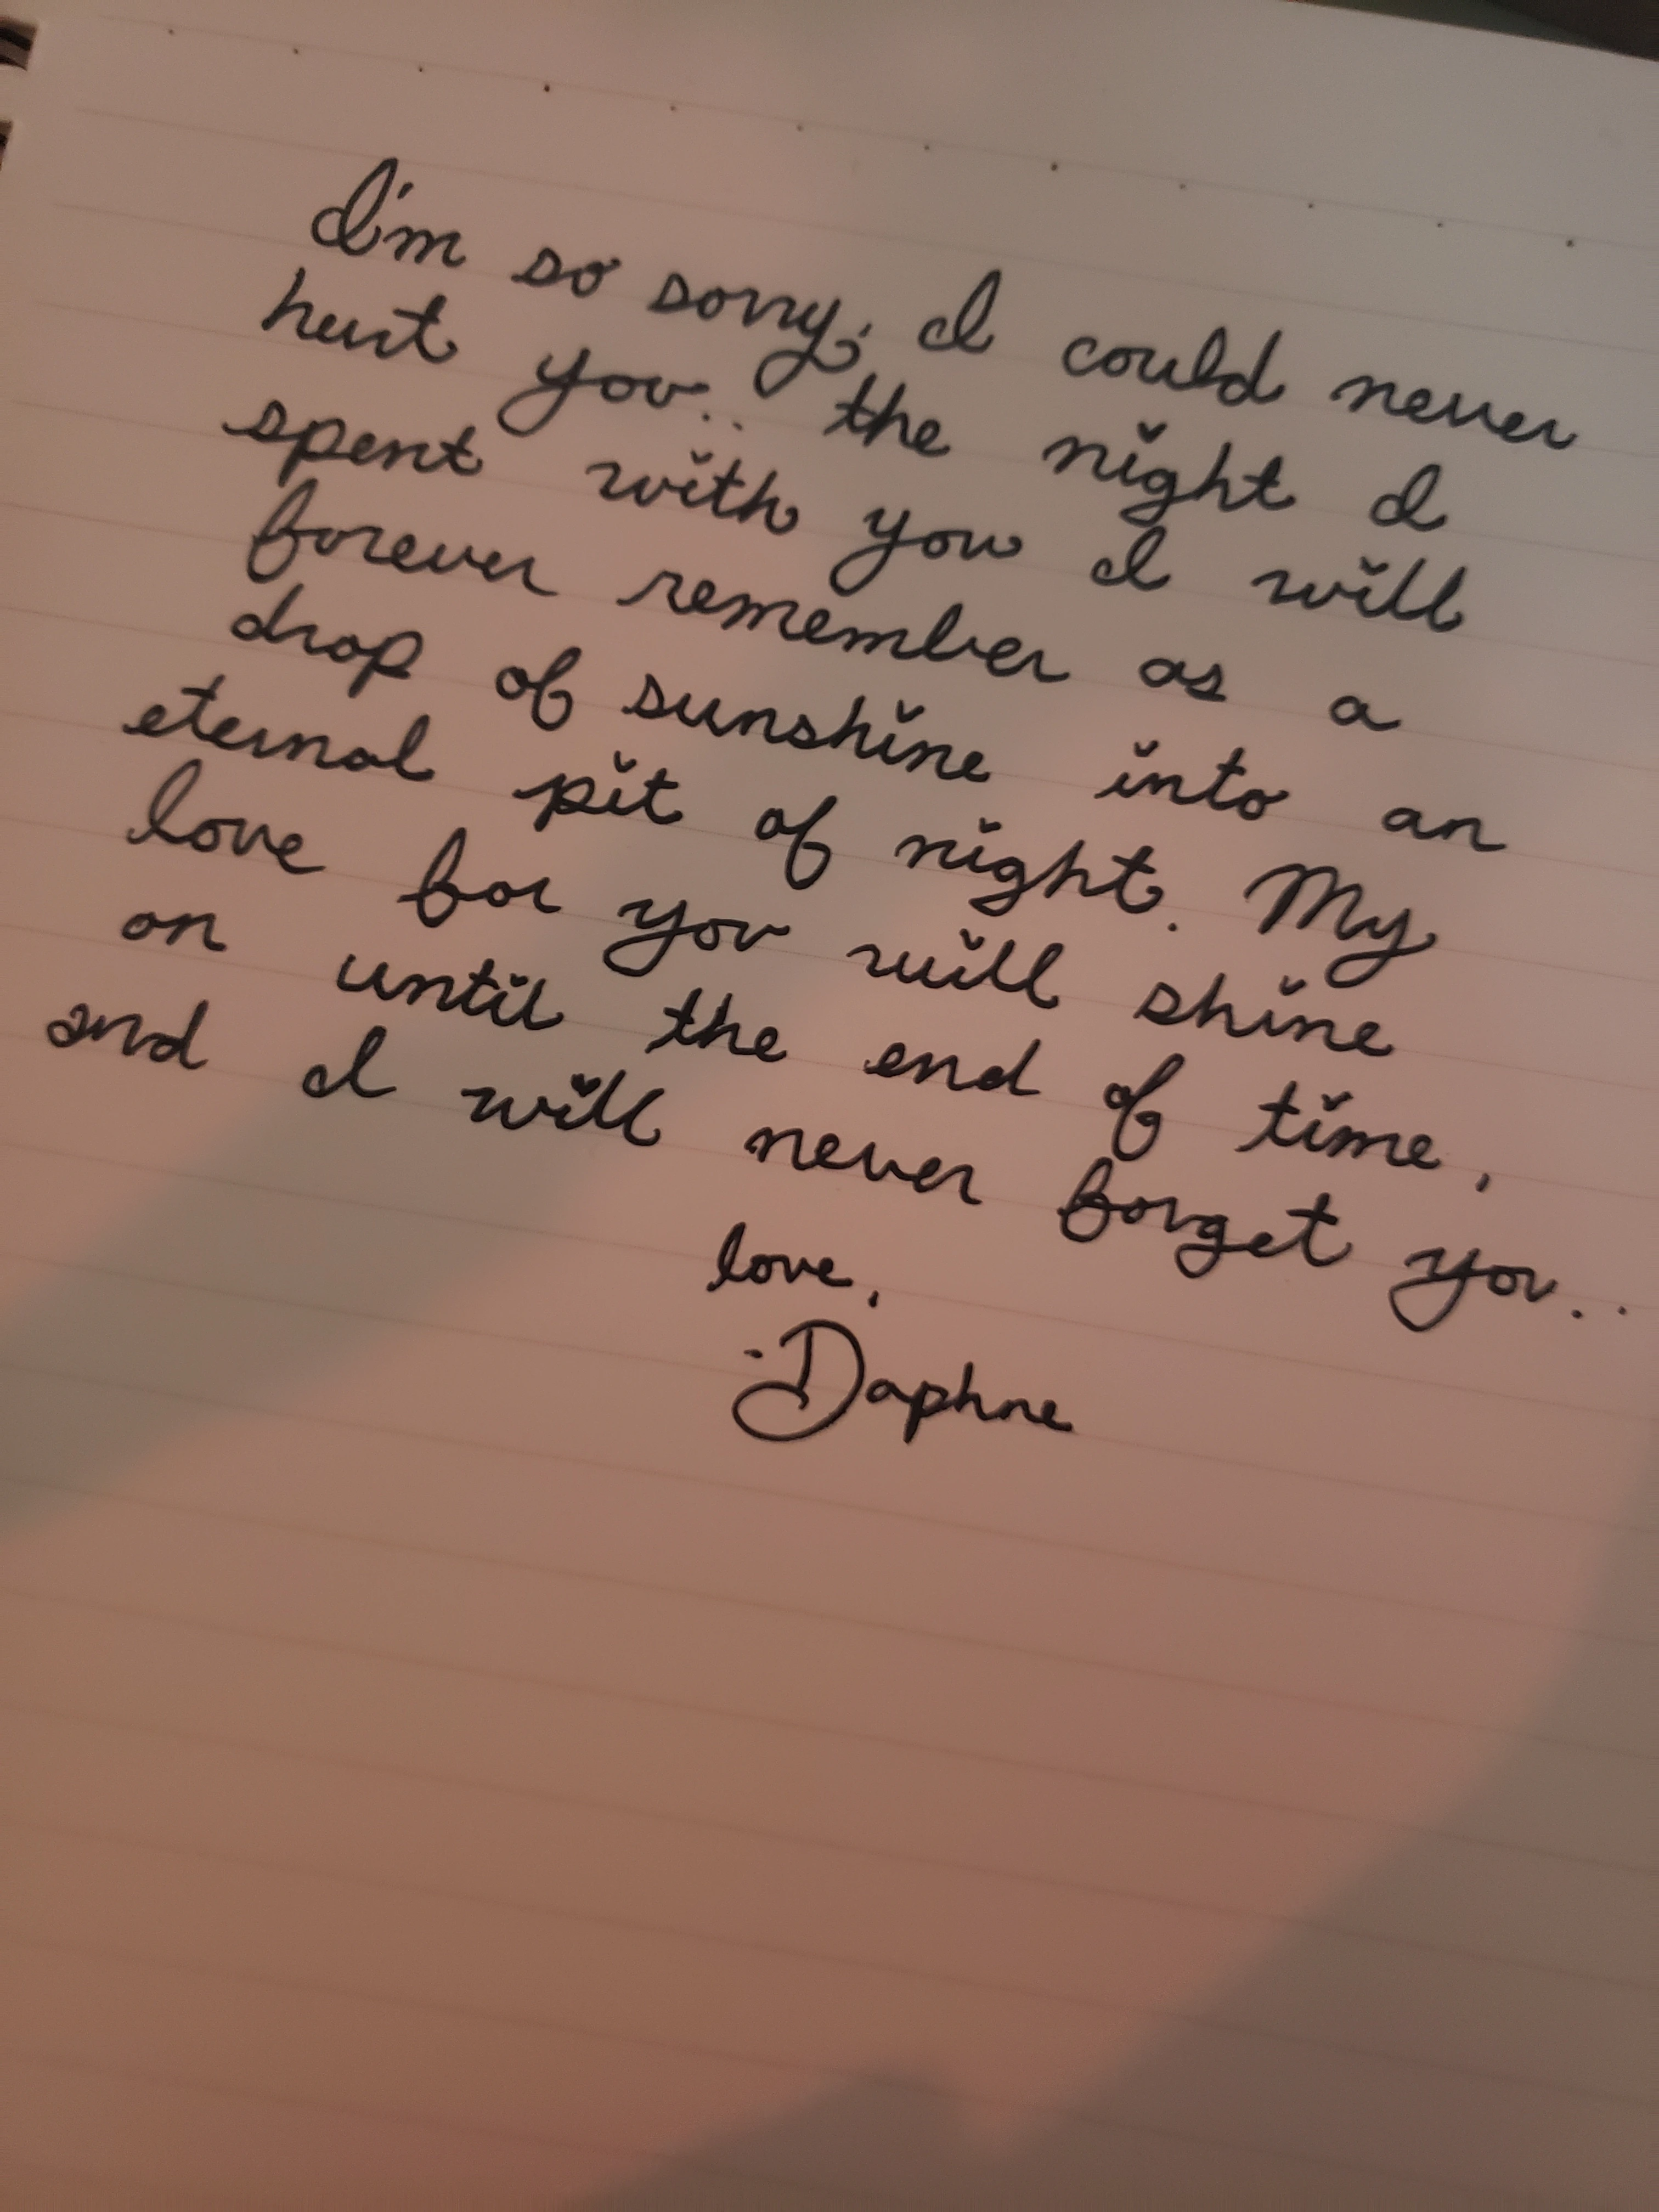 I'm so sorry, I could never
hurt you... the night I
spent with you I will
forever remember as a
drop of sunshine into an
eternal pit of night. My
love for you will shine
on until the end of time,
and I will never forget you..
love,
-Daphne